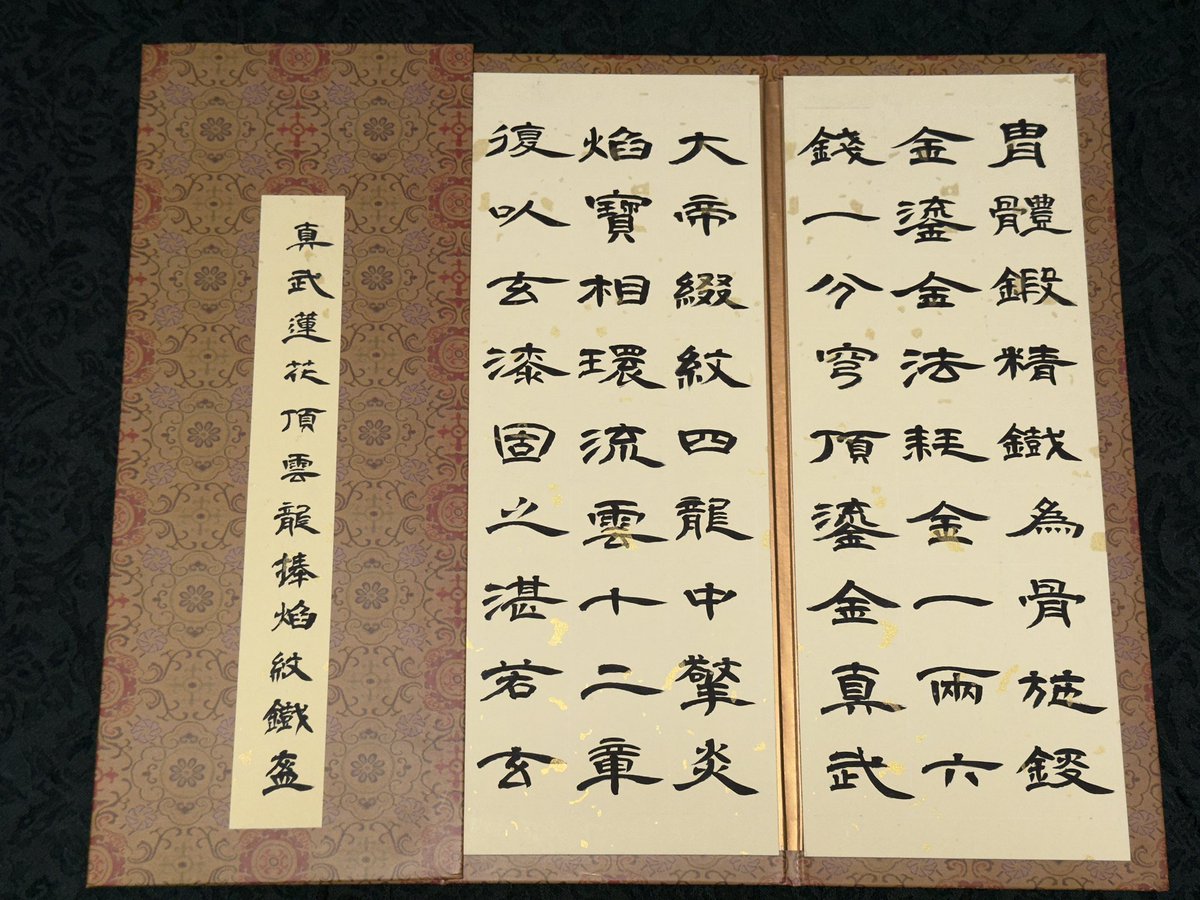 冑體鍛精鐵為骨施錽
金鎏金法耗金一兩六
錢一分穹頂鎏金真武
大帝綴紋四龍中擎炎
焰寶相環流雲十二章
復以玄漆固之湛若玄
真武蓮花頂雲龍捧焰紋鐵盔